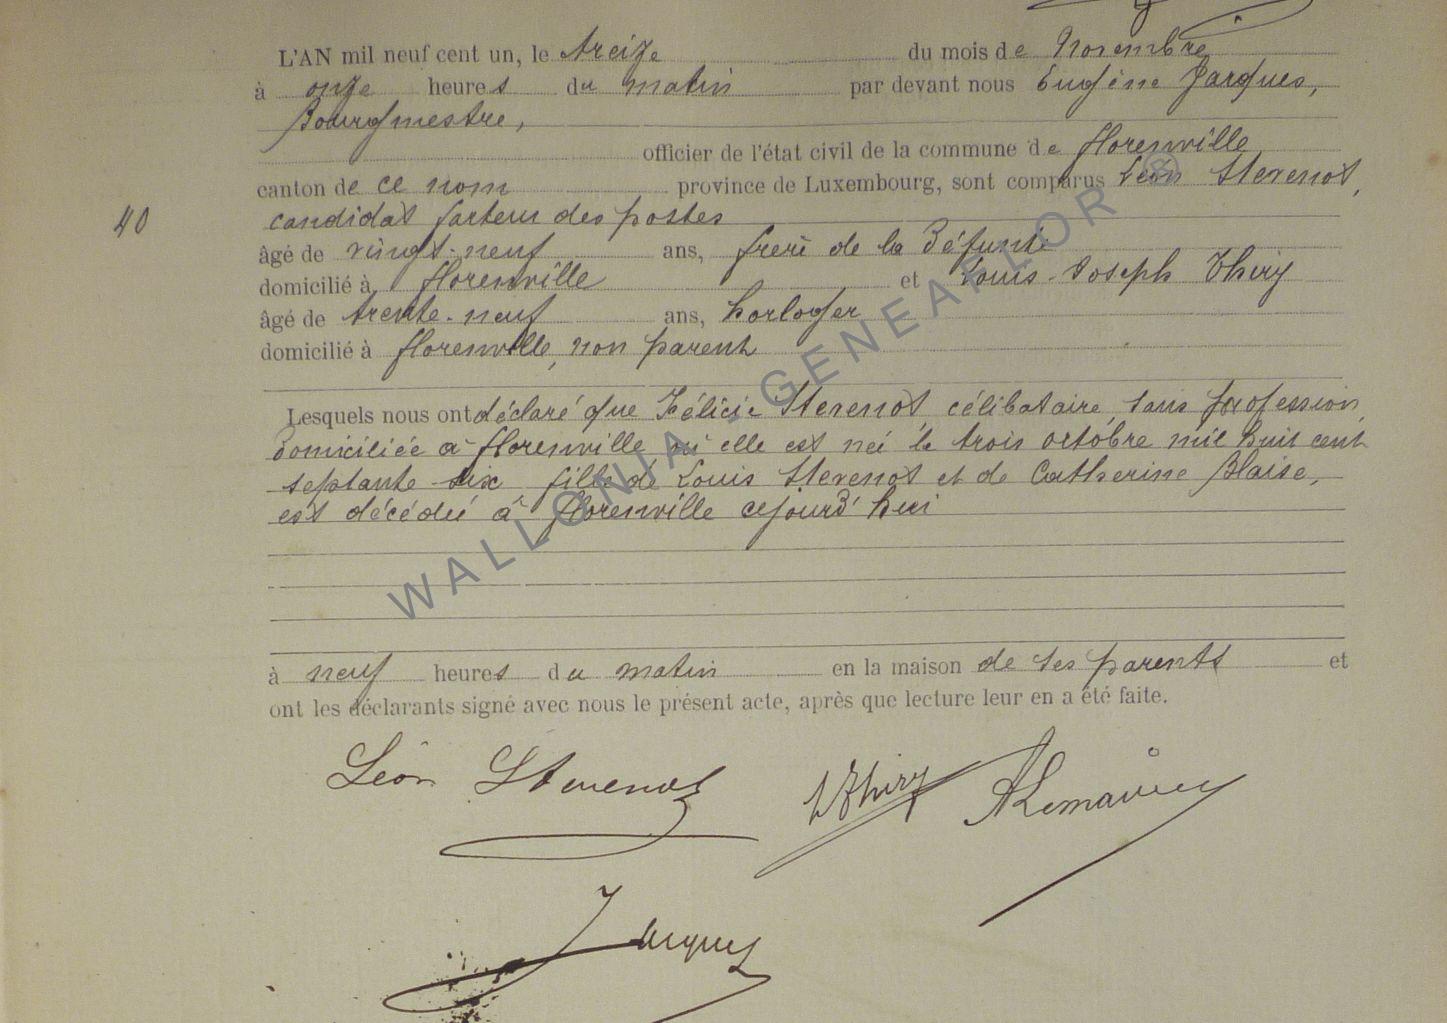 L'AN mil neuf cent un, le treize du mois de Novembre
à onze heures du matin par devant nous Eugène Jacques,
Bourgmestre,
officier de l'état civil de la commune de florenville
canton de ce nom province de Luxembourg, sont comparus Léon Stevenot,
40
candidat facteur des postes
âgé de vingt-neuf ans, frère de la défunte
domicilié à florenville et Louis-Joseph Thiry
âgé de trente-neuf ans, horloger
domicilié à florenville, non parent
Lesquels nous ont déclaré que Félicie Stevenot célibataire, sans profession,
domiciliée à florenville où elle est née le trois octobre mil huit cent
septante-six fille de Louis Stevenot et de Catherine Blaise,
est décédée à florenville cejourd'hui
WALLONIA - GENEAFLOR ®
à neuf heures du matin en la maison de ses parents et
ont les déclarants signé avec nous le présent acte, après que lecture leur en a été faite.
Léon Stevenot LThiry
Jacques